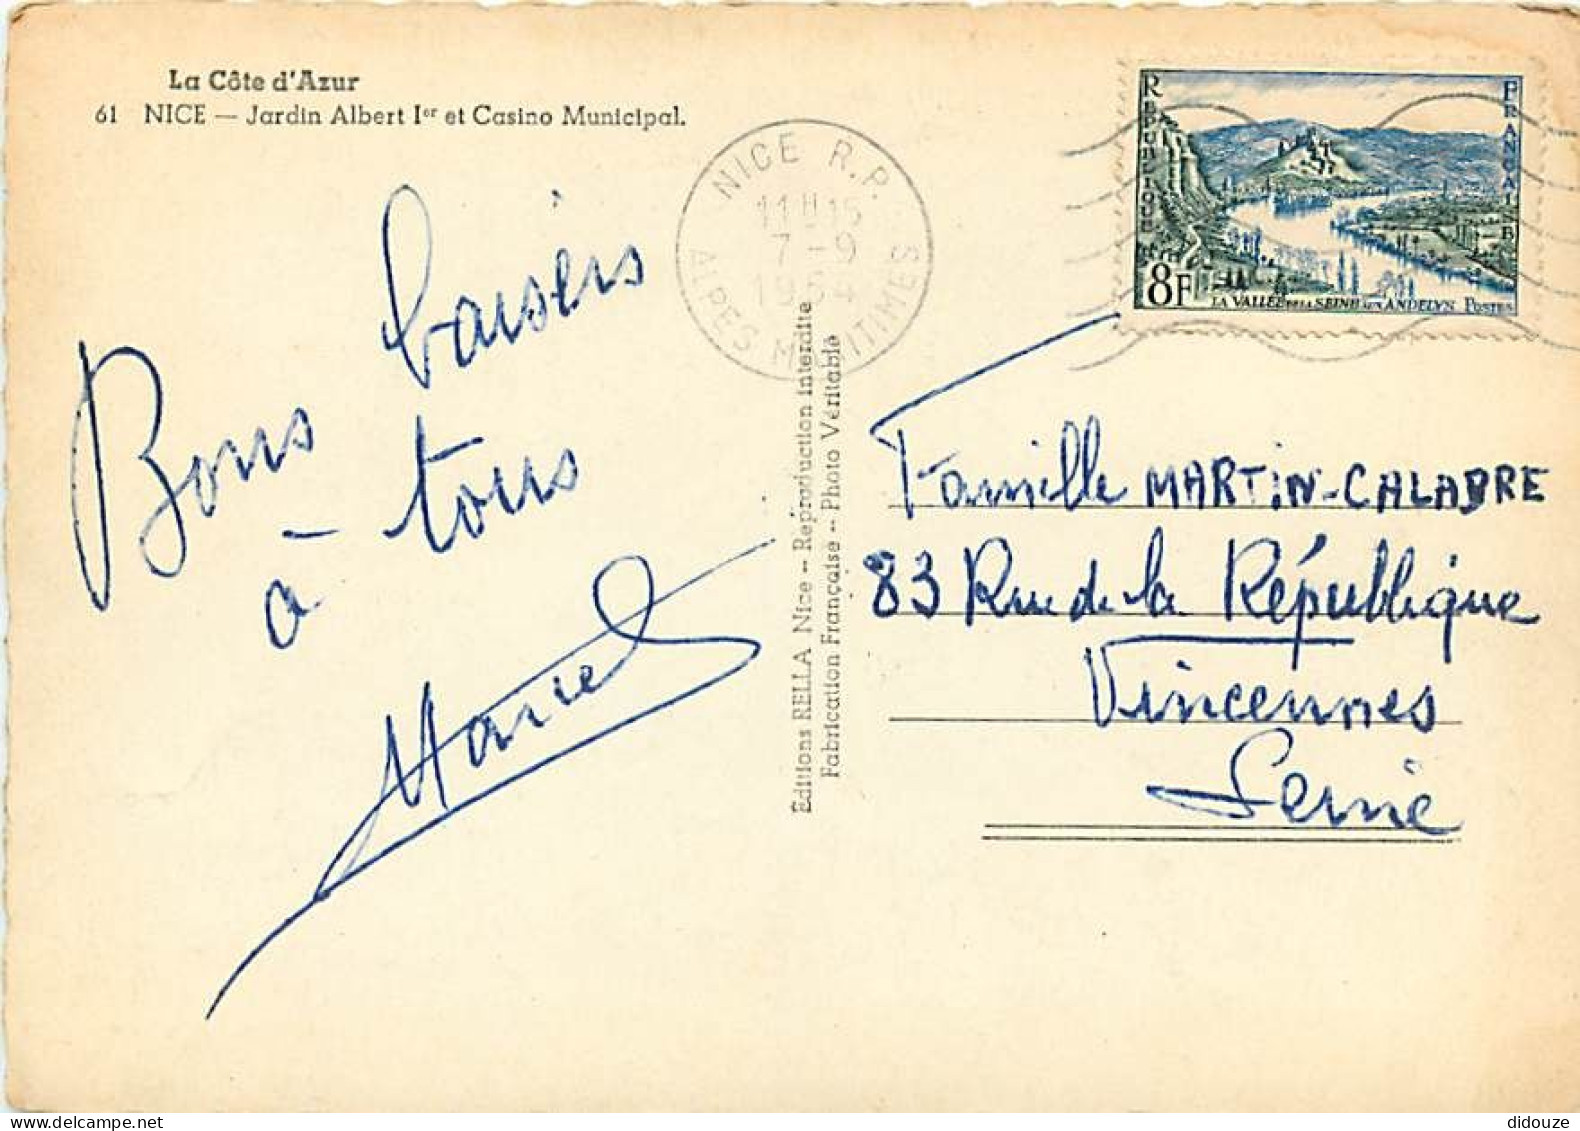 La Côte d'Azur
61 NICE — Jardin Albert Ier et Casino Municipal.
Bons baisers
à tous
Marcel
Éditions RELLA Nice -- Reproduction interdite
Fabrication Française -- Photo Véritable
NICE R.P.
11H15
7 -9
1954
ALPES MARITIMES
REPUBLIQUE FRANÇAISE
8F
LA VALLÉE DE LA SEINE AUX ANDELYS POSTES
Famille MARTIN-CALABRE
83 Rue de la République
Vincennes
Seine
didouze